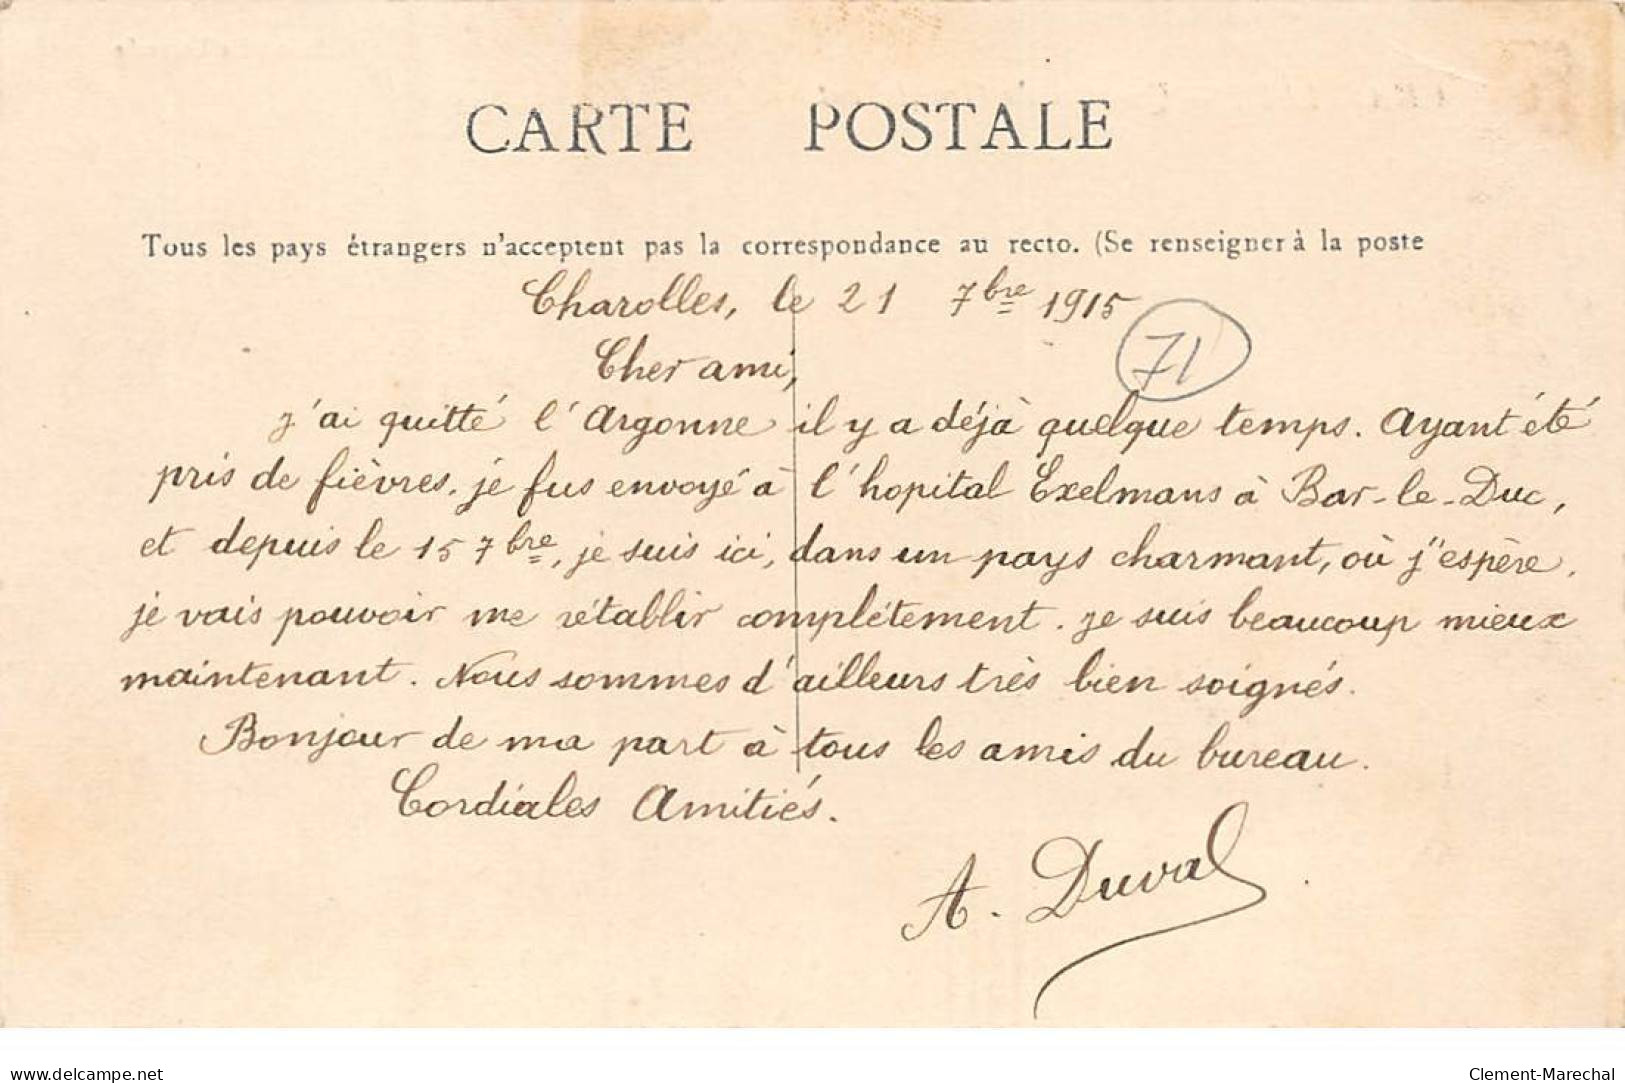 CARTE POSTALE
Tous les pays étrangers n'acceptent pas la correspondance au recto. (Se renseigner à la poste
Charolles, le 21 7bre 1915
71
Cher ami,
j'ai quitté l'Argonne il y a déjà quelque temps. Ayant été
pris de fièvres, je fus envoyé à l'hopital Exelmans à Bar-le-Duc,
et depuis le 15 7bre, je suis ici, dans un pays charmant, où j'espère,
je vais pouvoir me rétablir complétement. Je suis beaucoup mieux
maintenant. Nous sommes d'ailleurs très bien soignés.
Bonjour de ma part à tous les amis du bureau.
Cordiales Amitiés.
A. Duval
www.delcampe.net
Clement-Marechal